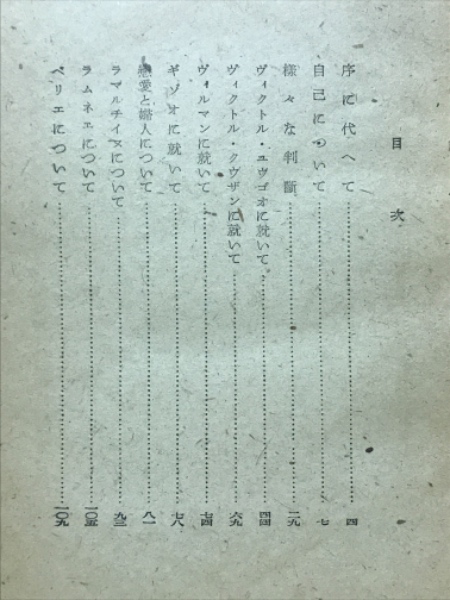 目次
序に代へて…………四
自己について…………七
様々な判断…………二九
ヴィクトル・ユウゴオに就いて…………四四
ヴィクトル・クウザンに就いて…………六九
ヴィルマンに就いて…………七四
ギゾオに就いて…………七八
戀愛と婦人について…………八一
ラマルチイヌについて…………九三
ラムネエについて…………一〇五
ベリエについて…………一〇九